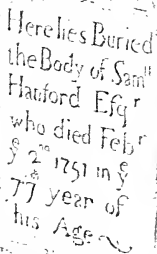 Here lies Buried
the Body of Sam^ll
Hanford Esq^r
who died Feb^r
y^e 2^nd 1751 in y^e
77 year of
his Age